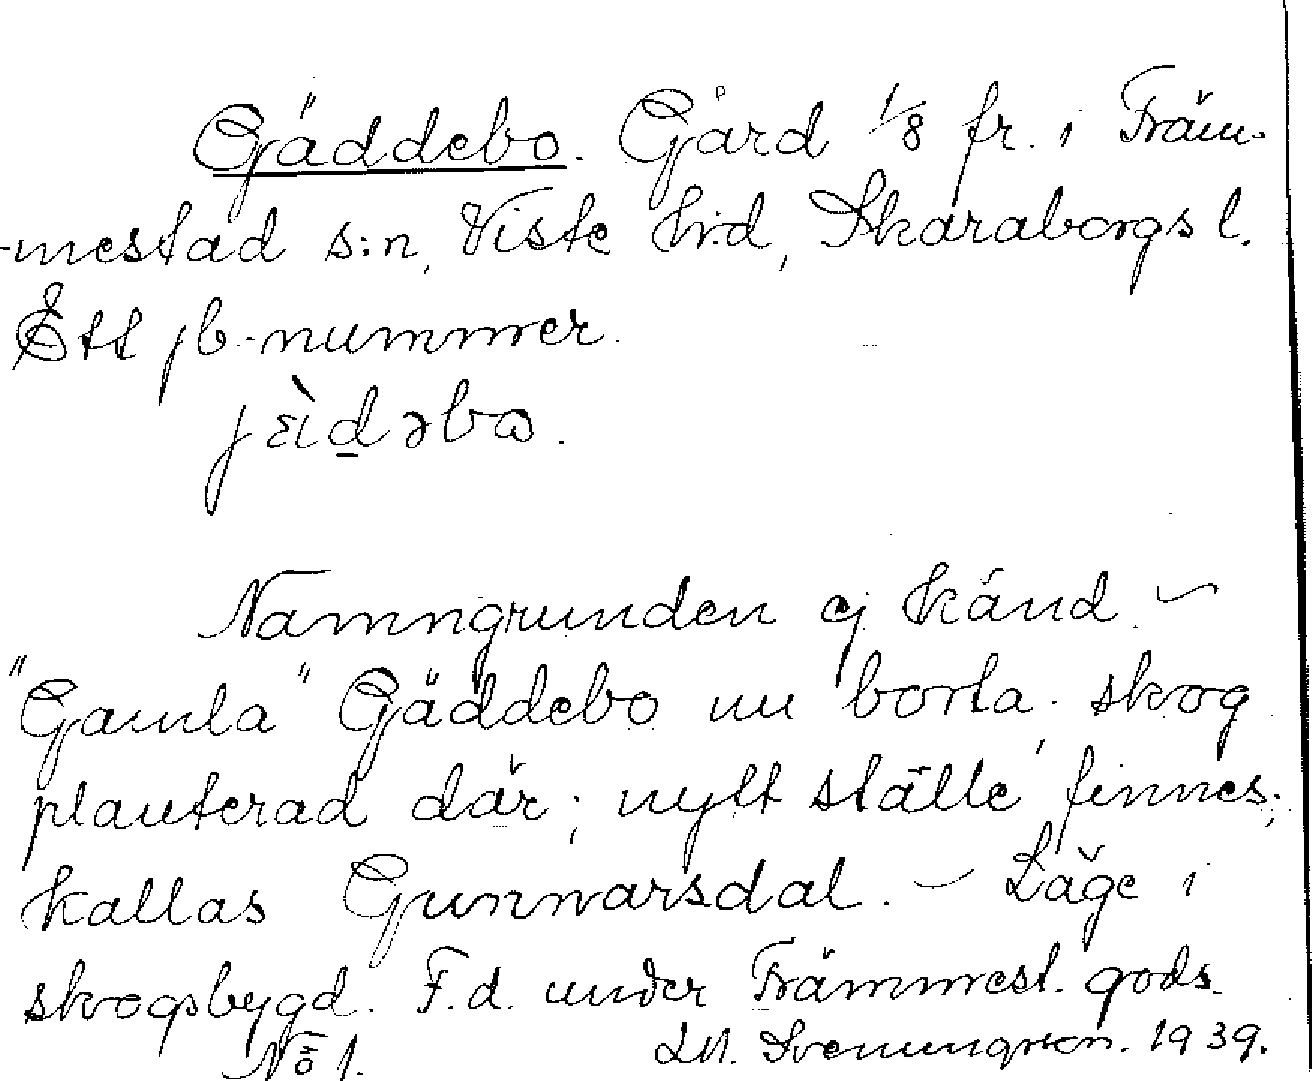 Gäddebo. Gård 1/8 fr. i Främ-
mestad s:n, Viste hrd, Skaraborgs l.
Ett jb.-nummer.
jɛ̀ıd̲əbɷ.
Namngrunden ej känd. –
"Gamla" Gäddebo nu borta, skog
planterad där; nytt ställe finnes;
kallas Gunnarsdal. – Läge i
skogsbygd. F.d. under Främmest. gods.
No 1. Svenungsson. 1939.